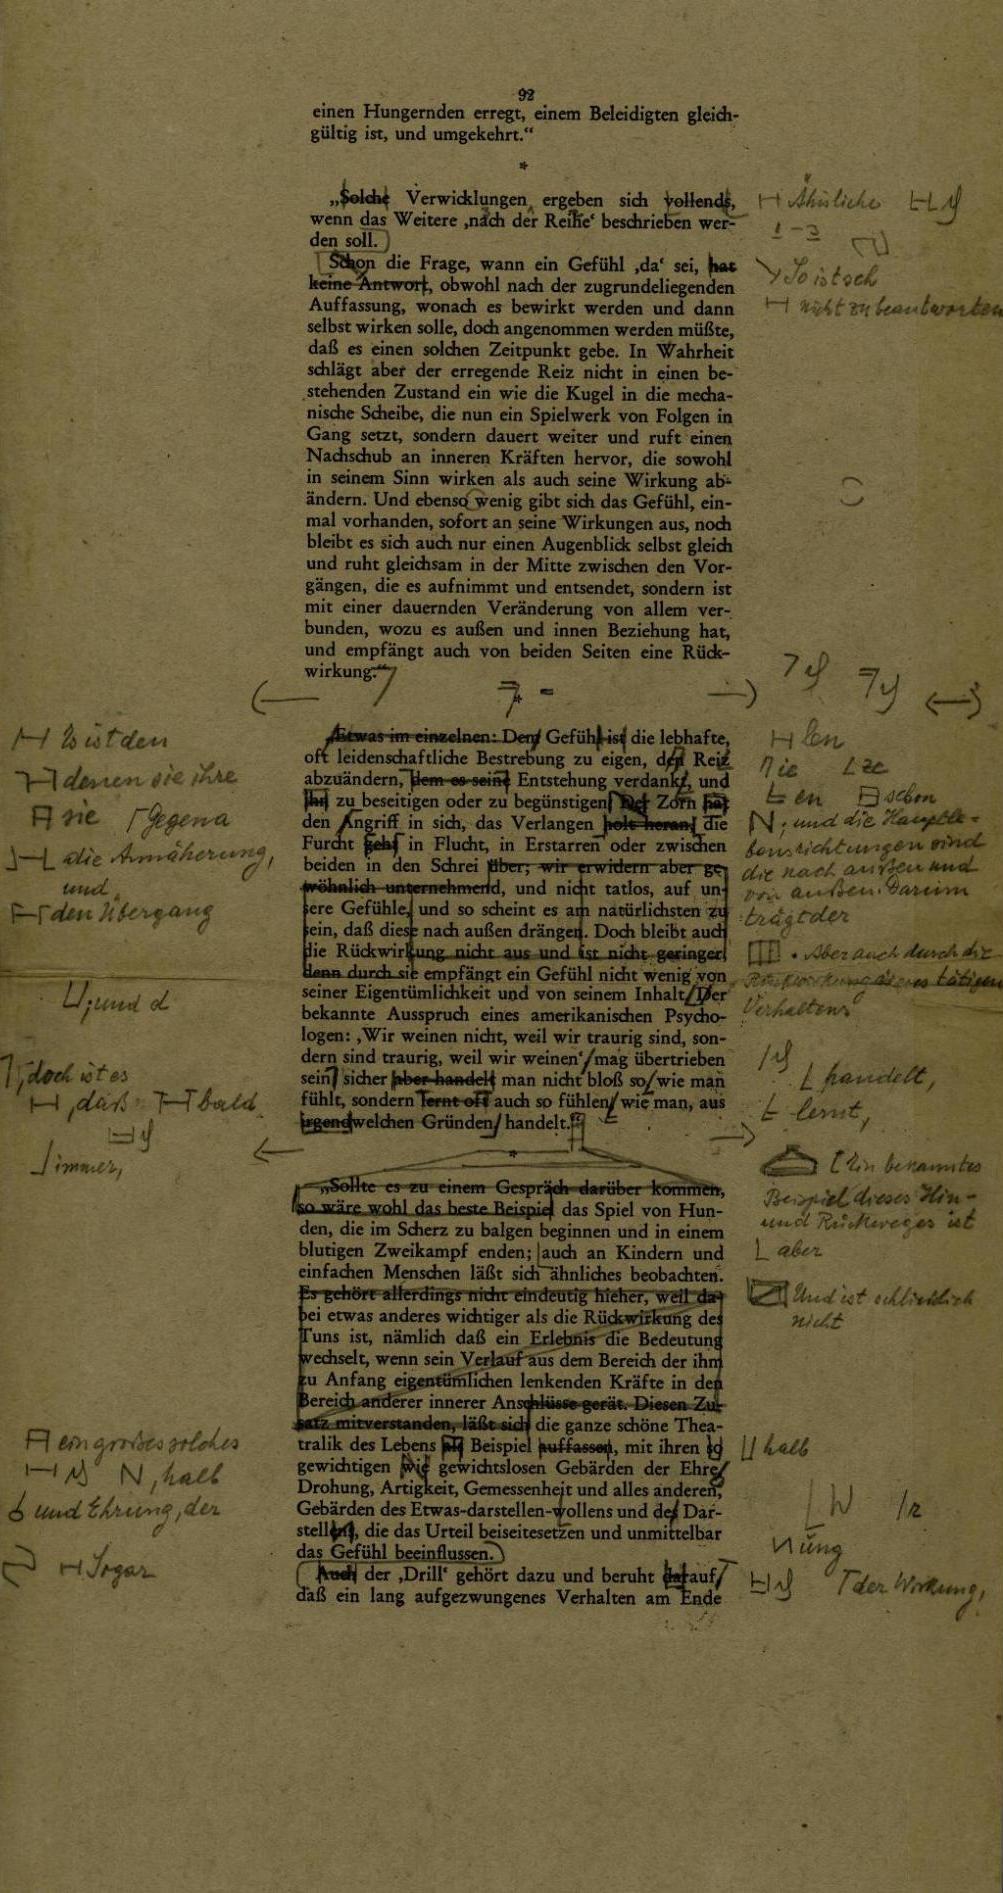 92
einen Hungernden erregt, einem Beleidigten gleich-
gültig ist, und umgekehrt.“
*
„Solche Verwicklungen ergeben sich vollends,
wenn das Weitere ‚nach der Reihe‘ beschrieben wer-
den soll.
Schon die Frage, wann ein Gefühl ‚da‘ sei, hat
keine Antwort, obwohl nach der zugrundeliegenden
Auffassung, wonach es bewirkt werden und dann
selbst wirken solle, doch angenommen werden müßte,
daß es einen solchen Zeitpunkt gebe. In Wahrheit
schlägt aber der erregende Reiz nicht in einen be-
stehenden Zustand ein wie die Kugel in die mecha-
nische Scheibe, die nun ein Spielwerk von Folgen in
Gang setzt, sondern dauert weiter und ruft einen
Nachschub an inneren Kräften hervor, die sowohl
in seinem Sinn wirken als auch seine Wirkung ab-
ändern. Und ebenso wenig gibt sich das Gefühl, ein-
mal vorhanden, sofort an seine Wirkungen aus, noch
bleibt es sich auch nur einen Augenblick selbst gleich
und ruht gleichsam in der Mitte zwischen den Vor-
gängen, die es aufnimmt und entsendet, sondern ist
mit einer dauernden Veränderung von allem ver-
bunden, wozu es außen und innen Beziehung hat,
und empfängt auch von beiden Seiten eine Rück-
wirkung.“
*
Etwas im einzelnen: Dem Gefühl ist die lebhafte,
oft leidenschaftliche Bestrebung zu eigen, den Reiz
abzuändern, dem es seine Entstehung verdankt, und
ihn zu beseitigen oder zu begünstigen. Der Zorn hat
den Angriff in sich, das Verlangen holt heran, die
Furcht geht in Flucht, in Erstarren oder zwischen
beiden in den Schrei über; wir erwidern aber ge-
wöhnlich unternehmend, und nicht tatlos, auf un-
sere Gefühle, und so scheint es am natürlichsten zu
sein, daß diese nach außen drängen. Doch bleibt auch
die Rückwirkung nicht aus und ist nicht geringer,
denn durch sie empfängt ein Gefühl nicht wenig von
seiner Eigentümlichkeit und von seinem Inhalt. Der
bekannte Ausspruch eines amerikanischen Psycho-
logen: ‚Wir weinen nicht, weil wir traurig sind, son-
dern sind traurig, weil wir weinen‘ mag übertrieben
sein, sicher aber handelt man nicht bloß so, wie man
fühlt, sondern lernt oft auch so fühlen, wie man, aus
irgendwelchen Gründen, handelt.“
*
„Sollte es zu einem Gespräch darüber kommen,
so wäre wohl das beste Beispiel das Spiel von Hun-
den, die im Scherz zu balgen beginnen und in einem
blutigen Zweikampf enden; auch an Kindern und
einfachen Menschen läßt sich ähnliches beobachten.
Es gehört allerdings nicht eindeutig hieher, weil da-
bei etwas anderes wichtiger als die Rückwirkung des
Tuns ist, nämlich daß ein Erlebnis die Bedeutung
wechselt, wenn sein Verlauf aus dem Bereich der ihm
zu Anfang eigentümlichen lenkenden Kräfte in den
Bereich anderer innerer Anschlüsse gerät. Diesen Zu-
satz mitverstanden, läßt sich die ganze schöne Thea-
tralik des Lebens als Beispiel auffassen, mit ihren so
gewichtigen wie gewichtslosen Gebärden der Ehre,
Drohung, Artigkeit, Gemessenheit und alles anderen,
Gebärden des Etwas-darstellen-wollens und des Dar-
stellens, die das Urteil beiseitesetzen und unmittelbar
das Gefühl beeinflussen.
Auch der ‚Drill‘ gehört dazu und beruht darauf,
daß ein lang aufgezwungenes Verhalten am Ende
Es ist den
denen sie ihre
sie
Gegena
die Annäherung,
und
den Übergang
; und d
, doch ist es
, daß
bald
immer,
ein großes solches
, halb
und Ehrung, der
Sogar
Ähnliche
1-3
So ist sch
nicht zu beantworten
len
ie
ze
en
schon
; und die Hauptle-
bensrichtungen sind
die nach außen und
von außen. Darum
trägt der
. Aber auch durch die
Rückwirkung des tätigen
Verhaltens
handelt,
lernt,
Ein bekanntes
Beispiel dieses Hin-
und Rückweges ist
aber
Und ist schließlich
nicht
halb
W
ung
der Wirkung,